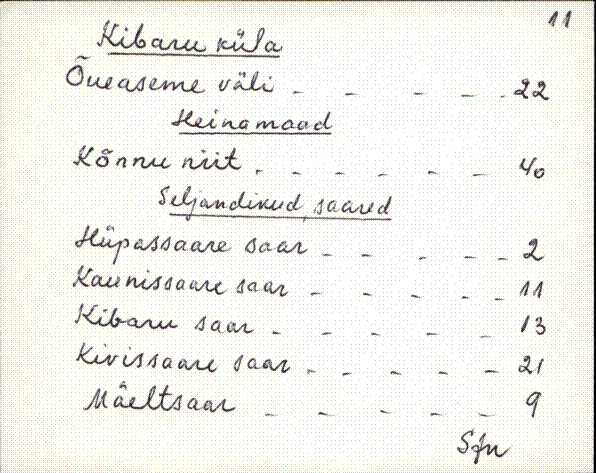 11
Kibaru küla
Õueaseme väli - - - - - 22
Heinamaad
Kõnnu niit - - - - - - 40
Seljandikud, saared
Hüpassaare saar - - - - - 2
Kaunissaare saar - - - - - 11
Kibaru saar - - - - - 13
Kivissaare saar - - - - - 21
Mäeltsaar - - - - - 9